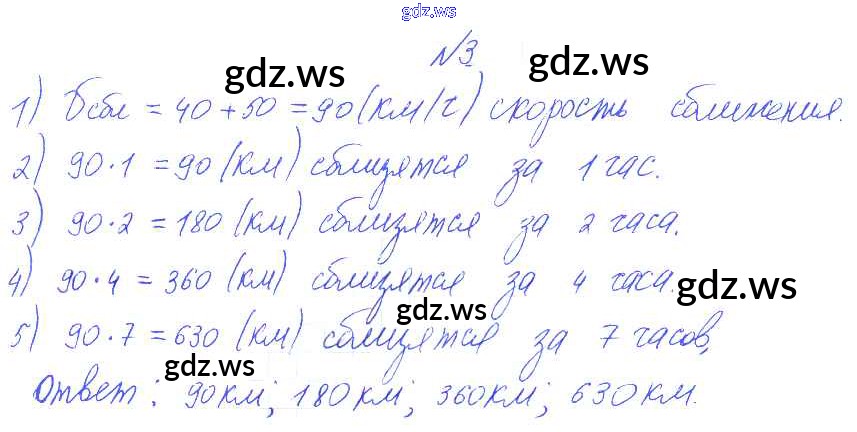 gdz.ws
N3
gdz.ws gdz.ws
1) υсбл = 40 + 50 = 90 (км/ч) скорость сближения.
2) 90 · 1 = 90 (км) сблизятся за 1 час.
3) 90 · 2 = 180 (км) сблизятся за 2 часа.
4) 90 · 4 = 360 (км) сблизятся за 4 часа.
gdz.ws gdz.ws
5) 90 · 7 = 630 (км) сблизятся за 7 часов,
gdz.ws
Ответ: 90 км; 180 км; 360 км; 630 км.